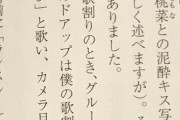 桃菜との泥酔キス写
しく述べますが)。
ありました。
歌割りのとき、グルー
ドアップは僕の歌割
」と歌い、カメラ目